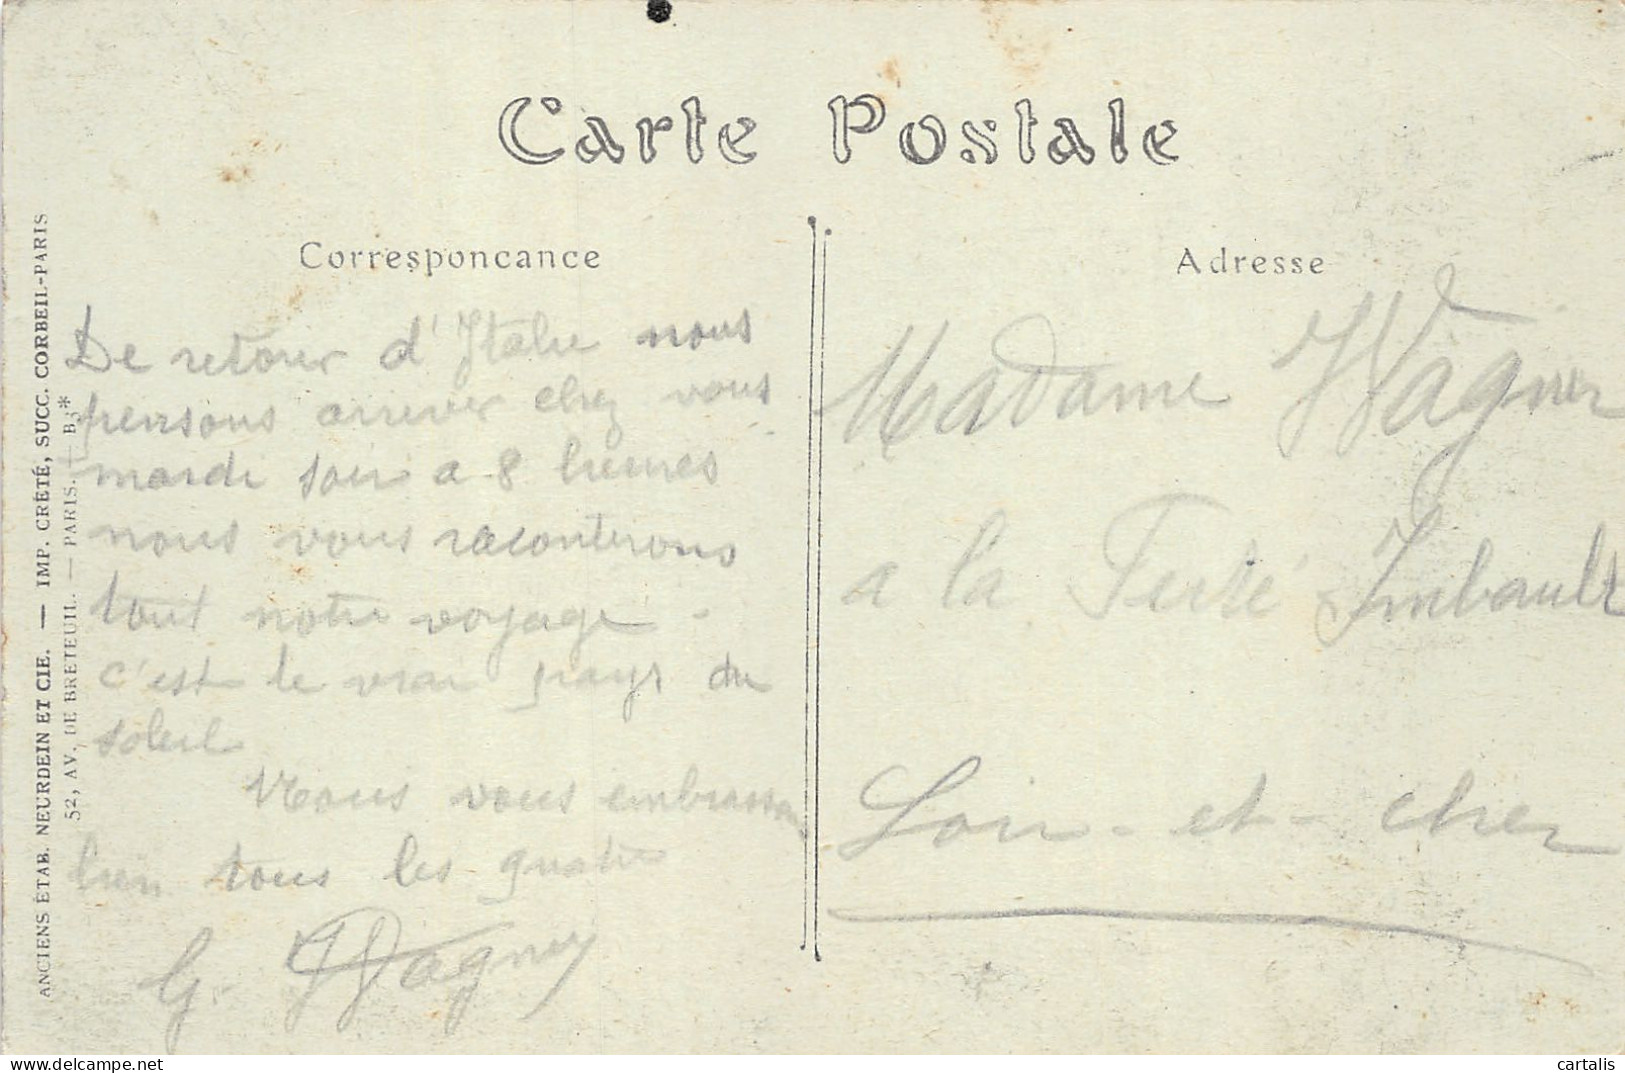 Carte Postale
Correspondance
De retour d'Italie nous
pensons arriver chez vous
mardi soir a 8 heures
nous vous raconterons
tout notre voyage -
c'est le vrai pays du
soleil
Nous vous embrassons
bien tous les quatre
G. Wagner
Adresse
Madame Wagner
a la Ferté Imbault
Loir-et-Cher
ANCIENS ÉTAB. NEURDEIN ET CIE. — IMP. CRÉTÉ, SUCC. CORBEIL-PARIS
52, AV. DE BRETEUIL. — PARIS. — B3*
cartalis